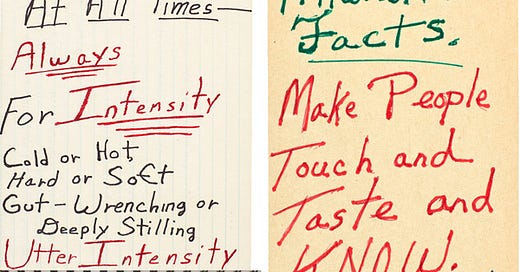 At All Times—
Always
For Intensity
Cold or Hot,
Hard or Soft
Gut-Wrenching or
Deeply Stilling
Utter Intensity
Facts.
Make People
Touch and
Taste and
KNOW.